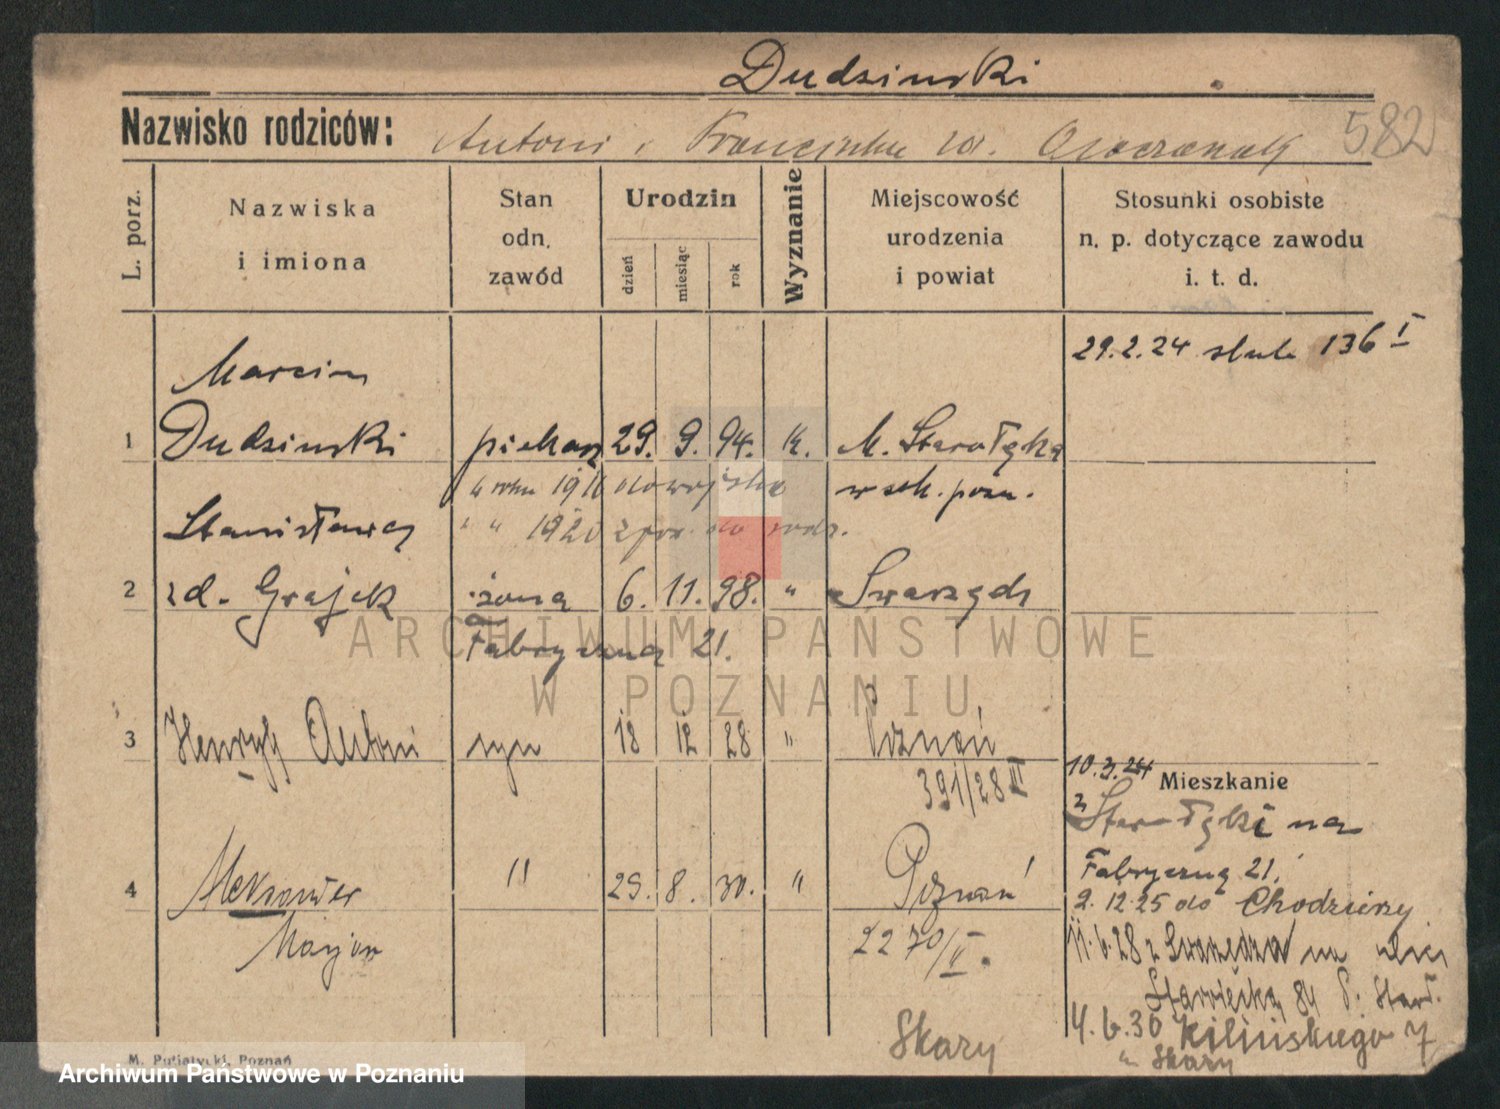 Dudzinski
582
Nazwisko rodziców: Antoni i Franciszka zd.
L. porz.
Nazwiska i imiona
Stan odn. zawód
Urodzin
dzień miesiąc rok
Wyznanie
Miejscowość urodzenia i powiat
Stosunki osobiste n. p. dotyczące zawodu i. t. d.
29.2.24 136 I
Marcin
1 Dudzinski piekarz 29. 9. 94. k. M. Starołęka
w roku 1916 do wojska
" " 1920 do rodz.
Stanisława
2 zd. Grajek żona 6. 11. 98. " Swarzędz
Fabryczna 21.
3 Henryk Antoni syn 18 12 28 " Poznań
391/28 II
10.3.24 Mieszkanie
z Starołęki na
Fabryczną 21.
4 Aleksander " 29. 8. 30. " Poznań
Marjan
2270/II.
2.12.25 do Chodzieży
11.6.28 z Swarzędza na
84
4.6.30 Kilińskiego 7
u Skary
Skary
M. Putiatycki, Poznań
ARCHIWUM PAŃSTWOWE
W POZNANIU
Archiwum Państwowe w Poznaniu